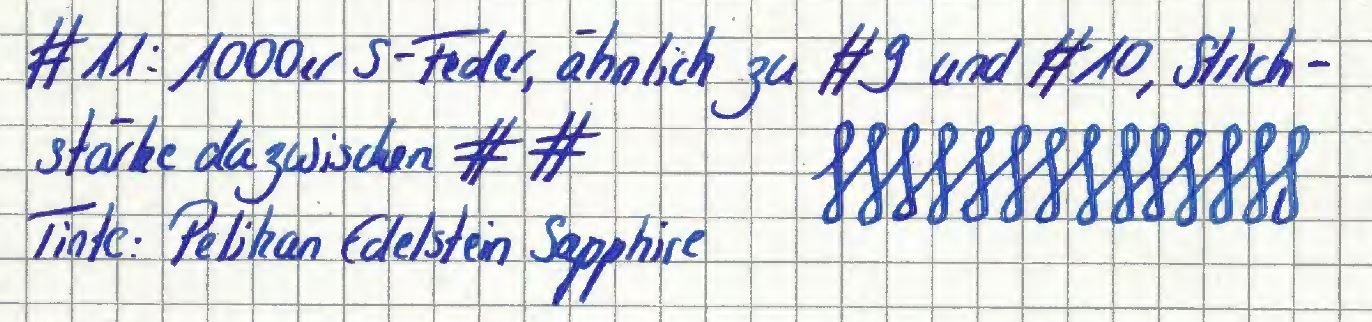 #11: 1000er S-Feder, ähnlich zu #9 und #10, Strich-
stärke dazwischen # #
Tinte: Pelikan Edelstein Sapphire